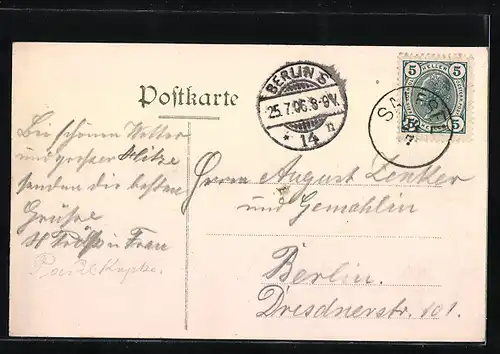 Postkarte
BERLIN S
25.7.06.8-9V.
* 14 n
5 HELLER 5
5 5
SA
7
Bei schönem Wetter
und grosser Hitze
senden die besten
Grüsse
u Frau
Paul
Herrn August Zenker
und Gemahlin
Berlin.
Dresdnerstr. 101.